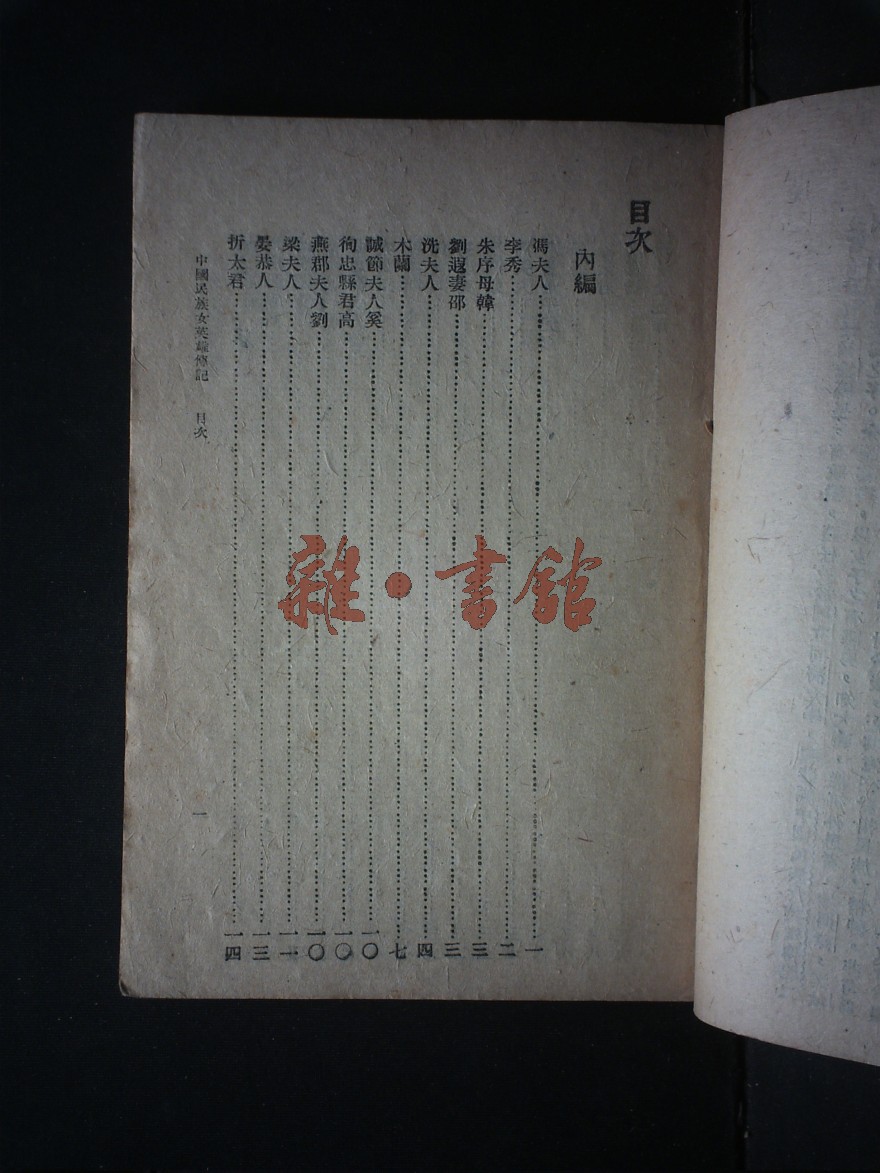 目次
內編
馮夫人……一
李秀……二
朱序母韓……三
劉遐妻邵……三
洗夫人……四
木蘭……七
誠節夫人奚……一〇
徇忠縣君高……一〇
燕郡夫人劉……一〇
梁夫人……一一
晏恭人……一三
折太君……一四
中國民族女英雄傳記 目次 一
雜·書館